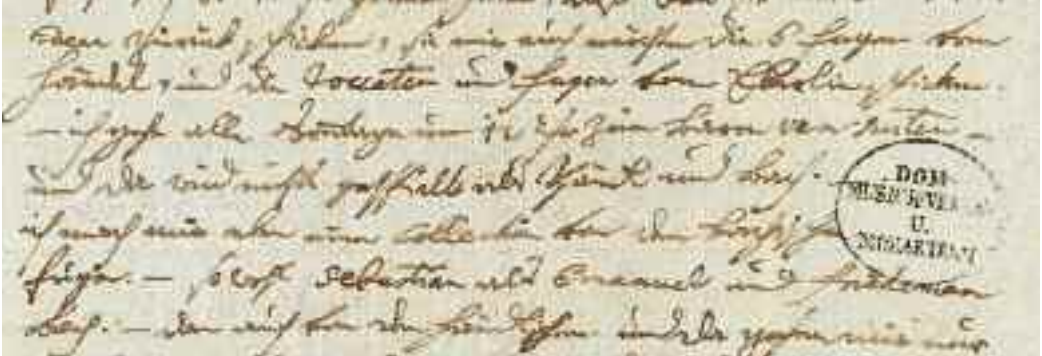 zurück schicken, sie mir auch möchten die 6 fugen vom
händel, und die toccaten und fugen vom Eberlin schicken.
– ich gehe alle Sonntage um 12 uhr zum Baron van suiten –
und da wird nichts gespiellt als Händl und Bach. –
ich mach mir eben eine Collection von den
fugen. – so wohl sebastian als Emanuel und friedeman
Bach. – dan auch von den händlischen. und da gehen mir nur
DOM-
U.